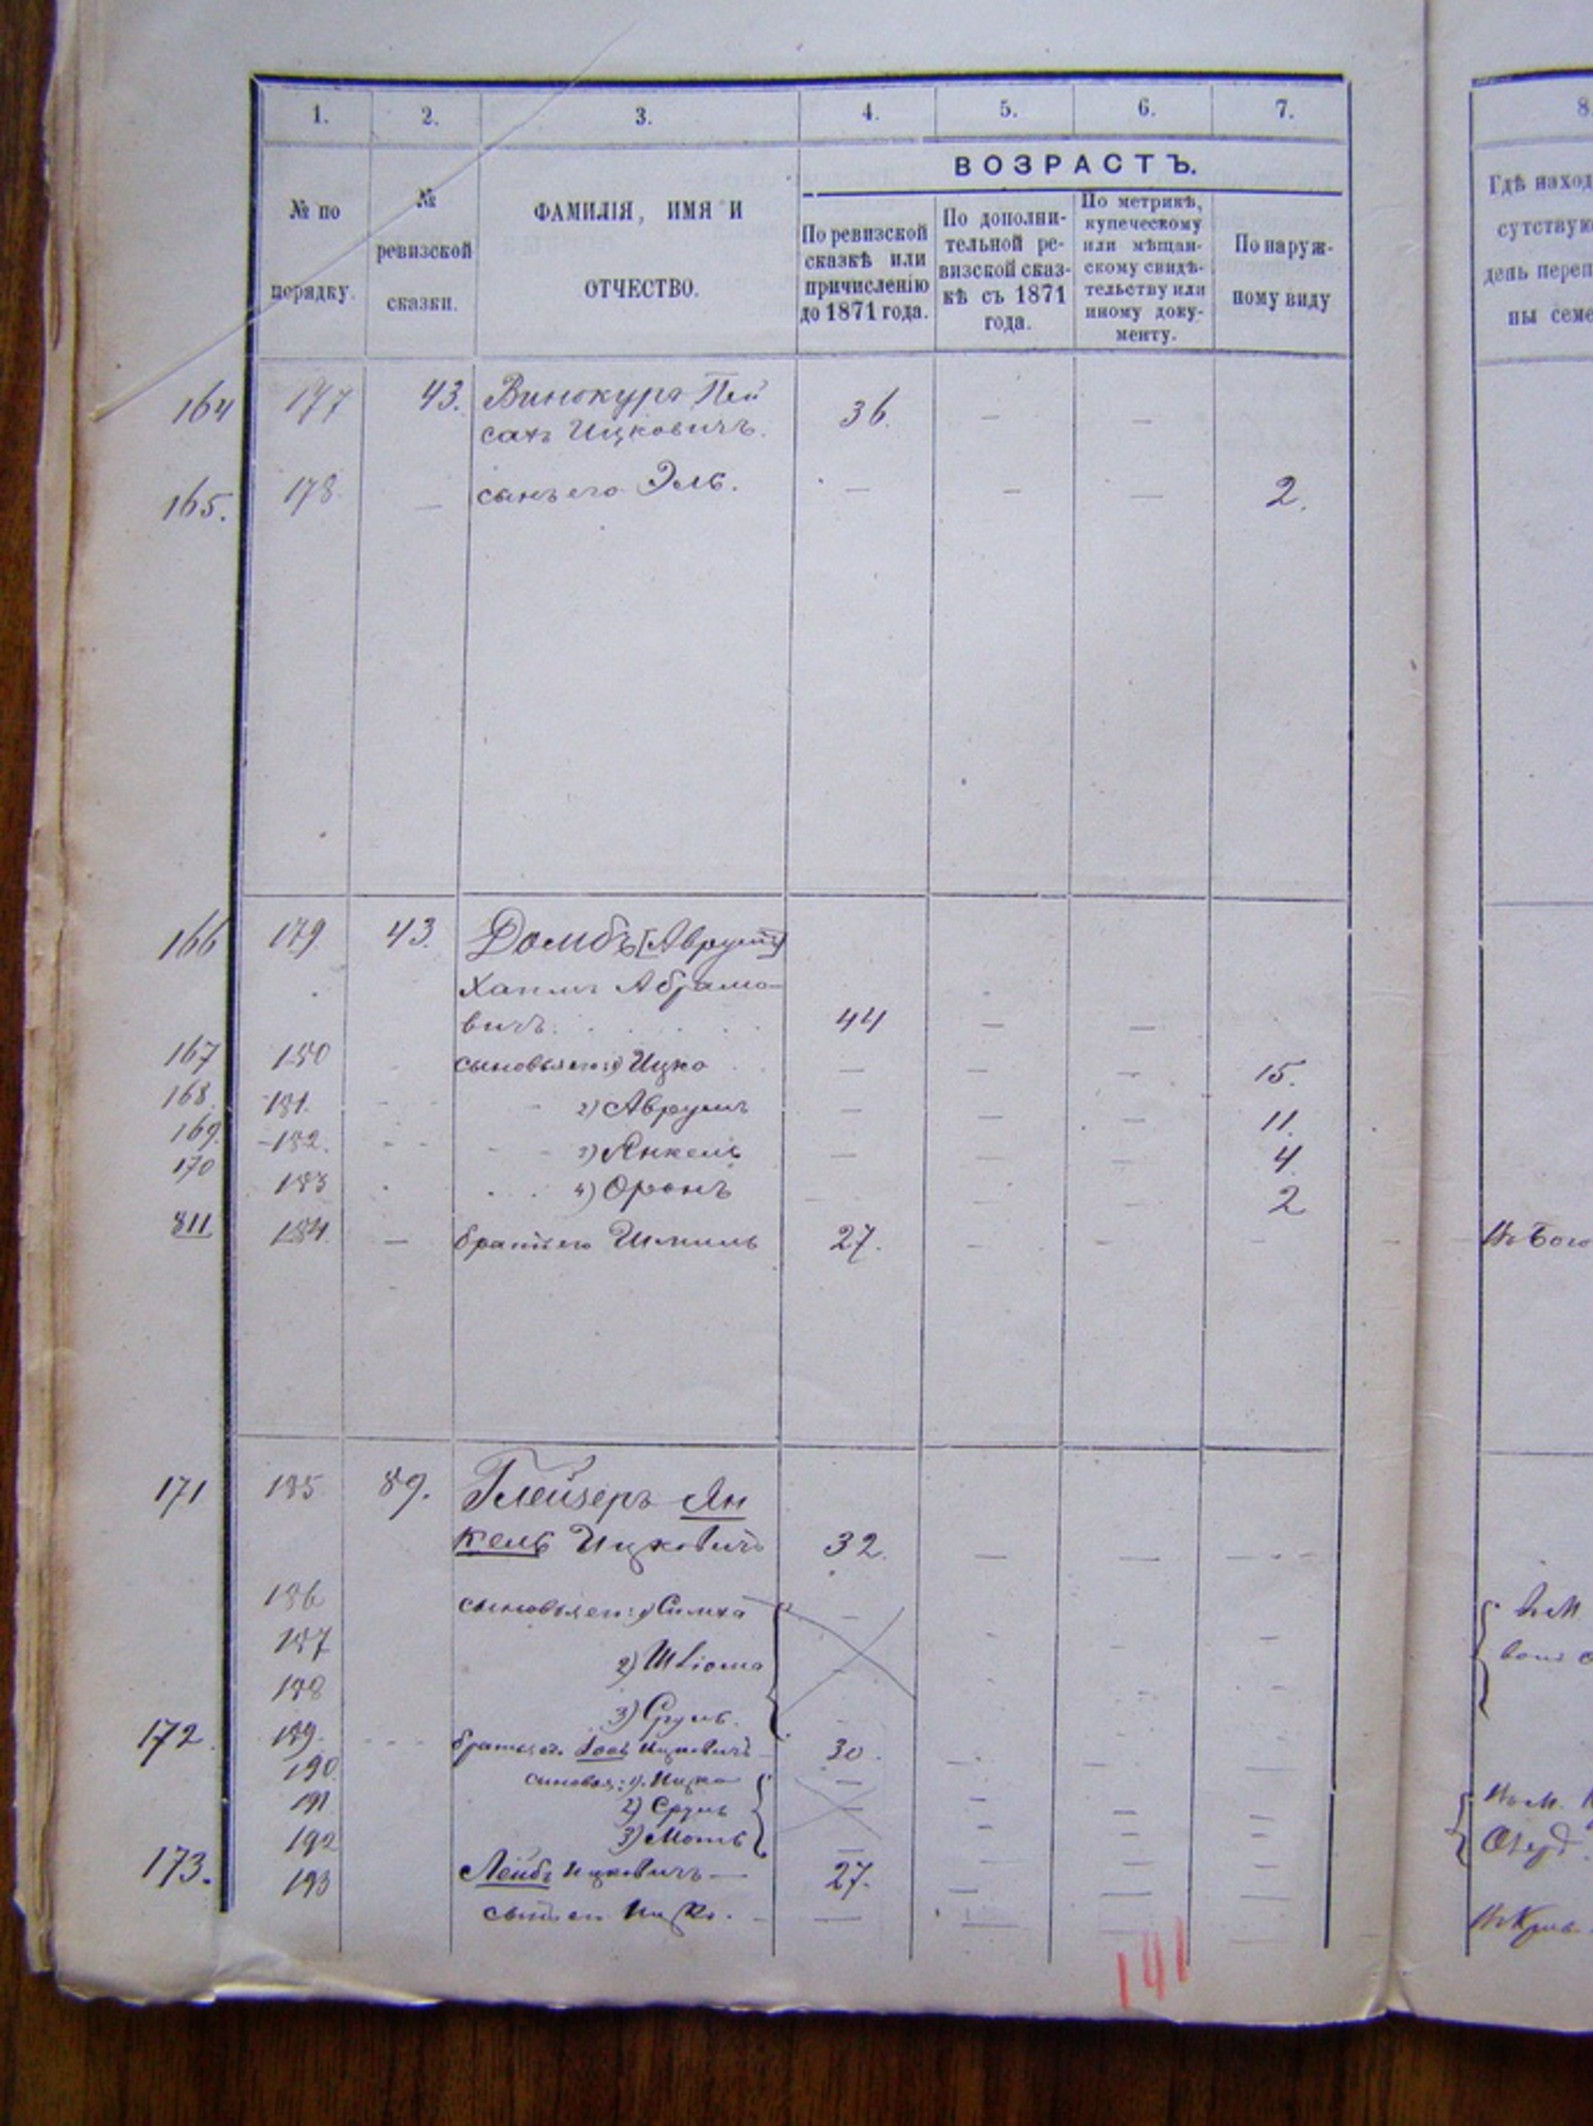 1. 2. 3. 4. 5. 6. 7. 8
№ по порядку.
№ ревизской сказки.
ФАМИЛІЯ, ИМЯ И ОТЧЕСТВО.
ВОЗРАСТЪ.
По ревизской сказкѣ или причисленію до 1871 года.
По дополни-
тельной ре-
визской сказ-
кѣ съ 1871
года.
По метрикѣ,
купеческому
или мѣщан-
скому свидѣ-
тельству или
иному доку-
менту.
По наруж-
ному виду
Гдѣ наход
сутствую
день переп
ны семе
164 177 43. Винокуръ Пей
сахъ Ицковичъ. 36. — —
165. 178 — сынъ его Эль. — — — 2.
166 179 43. Домбъ [Аврумъ]
Хаимъ Абрамо-
вичъ. 44 — —
167 180 сыновья его: 1) Ицко — — — 15.
168. 181. 2) Аврумъ — — — 11.
169. 182. 3) Янкель — — — 4
170 183 4) Оронъ — — — 2
811 184 — братъ его Шмиль 27. — — —
171 185 89. Глейзеръ Ян
кель Ицковичъ 32. — — —
186 сыновья его: 1) Симха —
187 2)
188 3) Сруль.
172. 189. братъ его Ицковичъ 30.
190. сыновья: 1). Ицко —
191 2) Сруль —
192 3) Моть —
173. 193 Лейбъ Ицковичъ — 27. — — —
сынъ его Ицко. — — — —
141